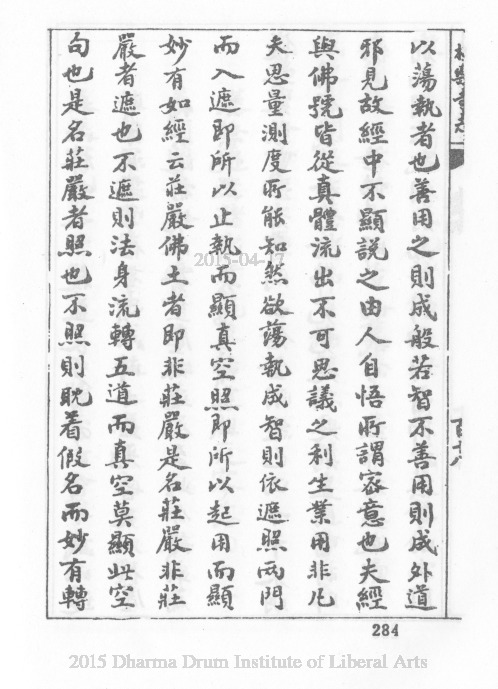 以蕩執者也善用之則成般若智不善用則成外道
邪見故經中不顯說之由人自悟所謂密意也夫經
與佛號皆從真體流出不可思議之利生業用非凡
夫思量測度所能知然欲蕩執成智則依遮照兩門
而入遮即所以止執而顯真空照即所以起用而顯
妙有如經云莊嚴佛土者即非莊嚴是名莊嚴非莊
嚴者遮也不遮則法身流轉五道而真空莫顯此空
句也是名莊嚴者照也不照則耽着假名而妙有轉
2015-04-17
284
2015 Dharma Drum Institute of Liberal Arts